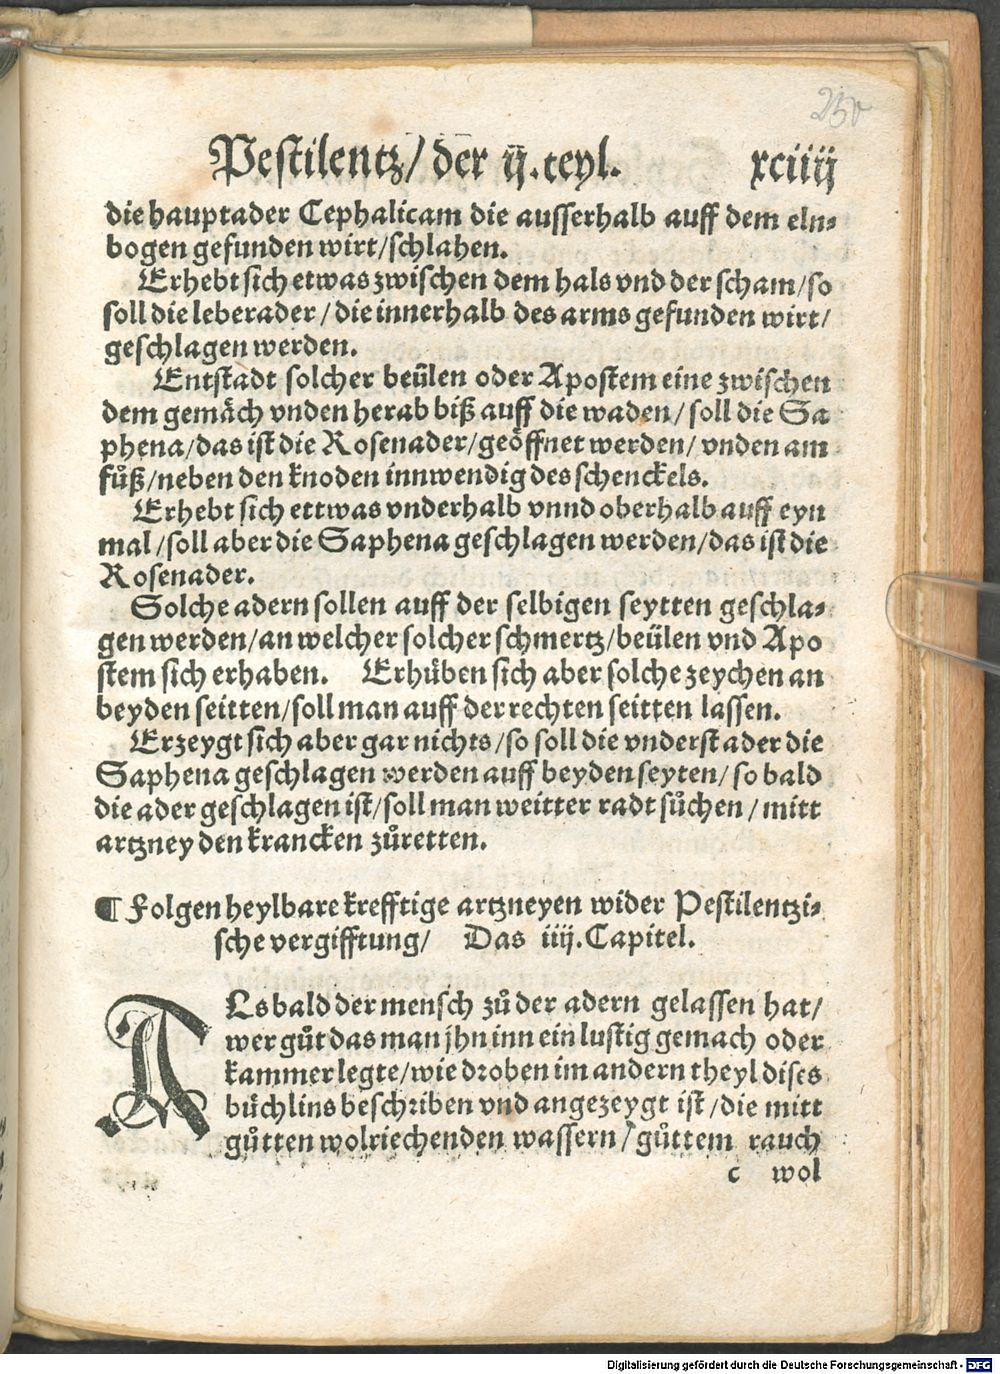 230
Pestilentz/ der ij. teyl. xciiij
die hauptader Cephalicam die ausserhalb auff dem eln⸗
bogen gefunden wirt/schlahen.
Erhebt sich etwas zwischen dem hals vnd der scham/so
soll die leberader/die innerhalb des arms gefunden wirt/
geschlagen werden.
Entstadt solcher beülen oder Apostem eine zwischen
dem gemächt vnden herab biß auff die waden/soll die Sa
phena/das ist die Rosenader/geöffnet werden/vnden am
fůß/neben den knoden innwendig des schenckels.
Erhebt sich ettwas vnderhalb vnnd oberhalb auff eyn
mal/soll aber die Saphena geschlagen werden/das ist die
Rosenader.
Solche adern sollen auff der selbigen seytten geschla⸗
gen werden/an welcher solcher schmertz/beülen vnd Apo
stem sich erhaben. Erhüben sich aber solche zeychen an
beyden seitten/soll man auff der rechten seitten lassen.
Erzeygt sich aber gar nichts/so soll die vnderst ader die
Saphena geschlagen werden auff beyden seyten/so bald
die ader geschlagen ist/soll man weitter radt sůchen/mitt
artzney den krancken zůretten.
¶ Folgen heylbare krefftige artzneyen wider Pestilentzi⸗
sche vergifftung/ Das iiij. Capitel.
ALs bald der mensch zů der adern gelassen hat/
wer gůt das man jhn inn ein lustig gemach oder
kammer legte/wie droben im andern theyl dises
büchlins beschriben vnd angezeygt ist/die mitt
gůtten wolriechenden wassern/gůttem rauch
c wol
Digitalisierung gefördert durch die Deutsche Forschungsgemeinschaft - DFG